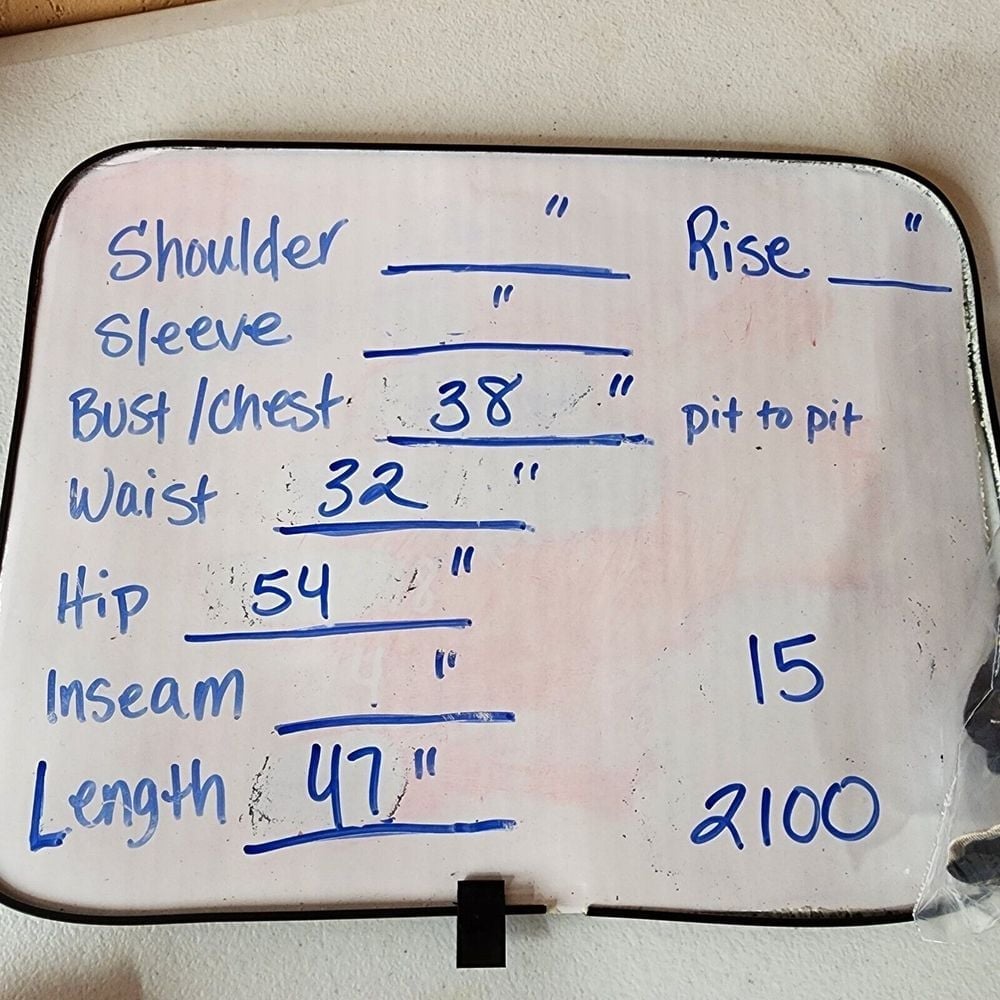 Shoulder ______ " Rise ____ "
Sleeve ______ "
Bust/Chest 38 " pit to pit
Waist 32 "
Hip 54 "
Inseam ______ "
15
Length 47 "
2100